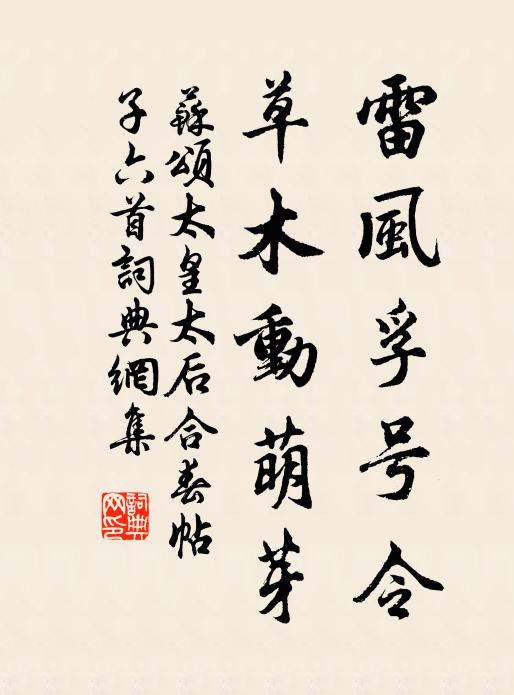 雷風孚号令
草木動萌芽
蘇頌太皇太后合春帖
子六首詞典網集
詞典網印